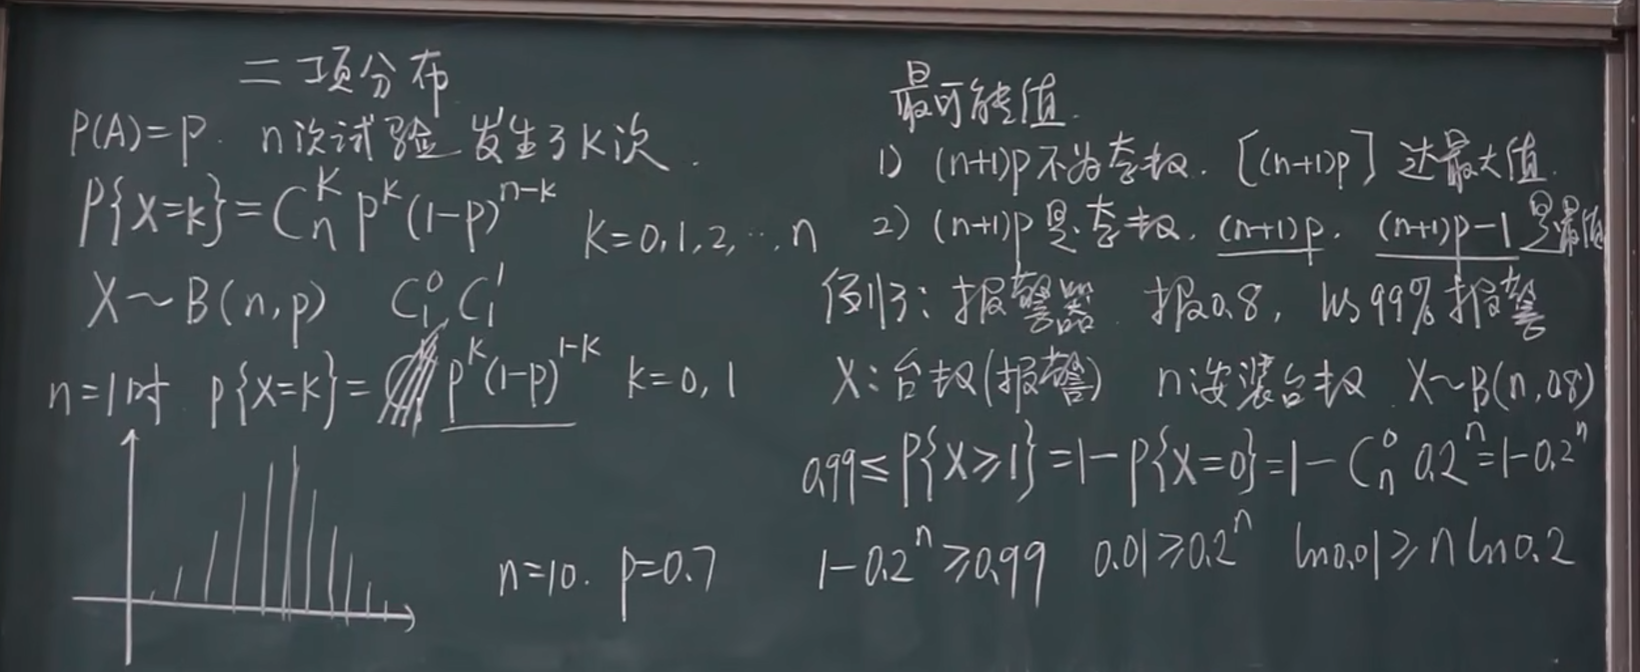 二项分布
P(A)=p. n次试验 发生了k次.
P{X=k}=Cₙᵏ pᵏ(1-p)ⁿ⁻ᵏ k=0,1,2,…,n
X~B(n,p) C₁⁰ C₁¹
n=1时 P{X=k}= pᵏ(1-p)¹⁻ᵏ k=0,1
n=10. p=0.7
最可能值.
1) (n+1)p不为整数. [(n+1)p] 达最大值.
2) (n+1)p是整数. (n+1)p. (n+1)p-1 是最值
例3: 报警器 报0.8, 以99%报警
X:台数(报警) n安装台数 X~B(n,0.8)
0.99≤P{X≥1}=1-P{X=0}=1-Cₙ⁰ 0.2ⁿ=1-0.2ⁿ
1-0.2ⁿ≥0.99 0.01≥0.2ⁿ ln0.01≥n ln0.2